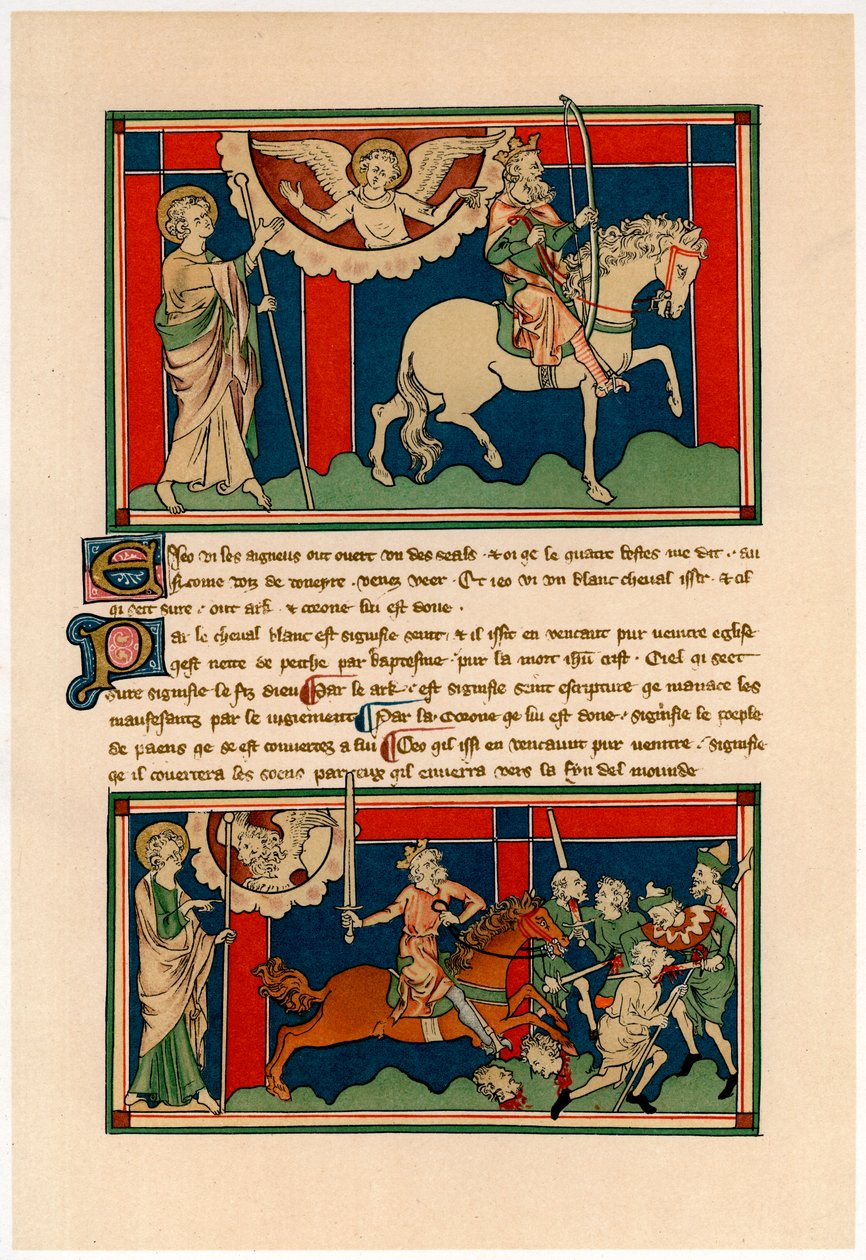 E Jeo vi les aigneus out overt un des seals · & oi qe le quatre bestes me dit · au
si come voiz de toneyre · venez veer · Et ieo vi un blanc cheval issir · & cil
qi seit sure · out ark · & corone lui est done ·
Par le cheval blanc est signifie seint · & il issit en vencant pur veintre eglise
qest nette de pecche par baptesme pur la mort ihu crist · Ciel qi seet
sure signifie le fiz dieu Par le ark · est signifie seint escripture qe manace les
maufesantz par le iugiement Par la Corone qe lui est done · signifie le poeple
de paens qe se est convertez a lui Ceo qil issi en vencaunt pur veintre · signifie
qe il covertera les soens par ceux qil enverra vers la fyn del mounde